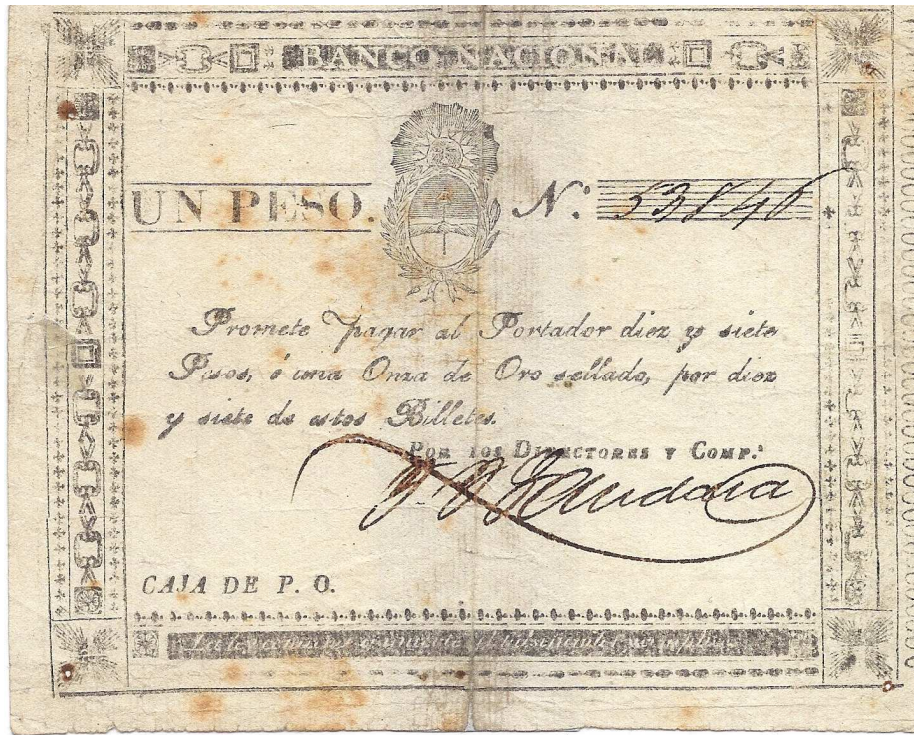 BANCO NACIONAL
UN PESO.
N: 53846
Promete pagar al Portador diez y siete
Pesos, ó una Onza de Oro sellado, por diez
y siete de estos Billetes.
POR LOS DIRECTORES Y COMP.ª
CAJA DE P. O.